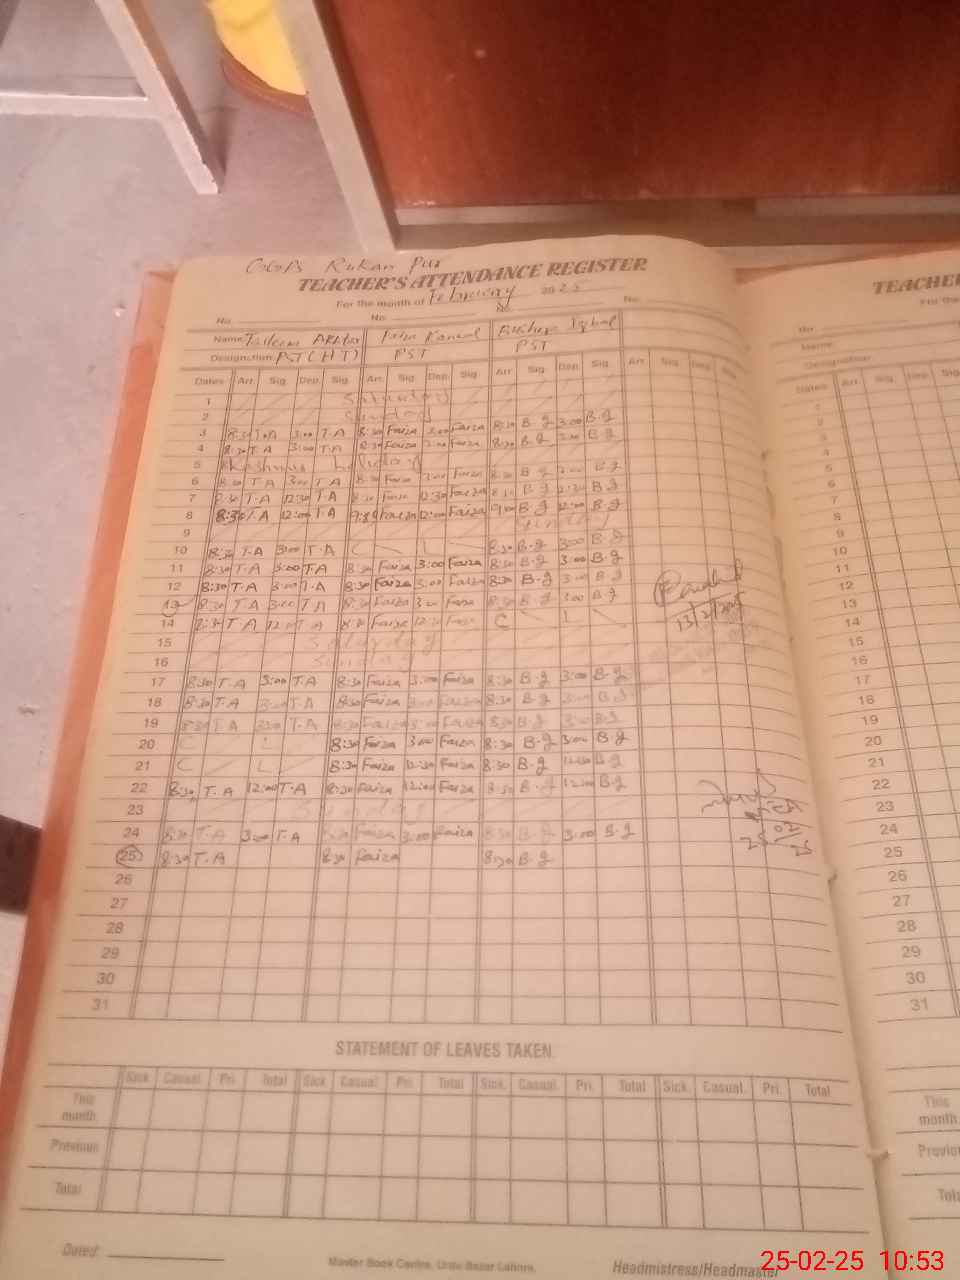 GGPS Rukan Pur
TEACHER'S ATTENDANCE REGISTER
For the month of February 2025
No. No. No. No.
Name Akhtar Faiza Kanwal Iqbal
Designation: PST (HT) PST PST
Dates Arr. Sig. Dep. Sig. Arr. Sig. Dep. Sig. Arr. Sig. Dep. Sig. Arr. Sig. Dep. Sig.
1 Saturday
2 Sunday
3 8:30 T.A 3:00 T.A 8:30 Faiza 3:00 Faiza 8:30 B.J 3:00 B.J
4 8:30 T.A 3:00 T.A 8:30 Faiza 3:00 Faiza 8:30 B.J 3:00 B.J
5 Kashmir holiday
6 8:30 T.A 3:00 T.A 8:30 Faiza 3:00 Faiza 8:30 B.J 3:00 B.J
7 8:30 T.A 12:30 T.A 8:30 Faiza 12:30 Faiza 8:30 B.J 12:30 B.J
8 8:30 T.A 12:00 T.A Faiza 12:00 Faiza 9:00 B.J 12:00 B.J
9 Sunday
10 8:30 T.A 3:00 T.A C L 8:30 B.J 3:00 B.J
11 8:30 T.A 3:00 T.A 8:30 Faiza 3:00 Faiza 8:30 B.J 3:00 B.J
12 8:30 T.A 3:00 T.A 8:30 Faiza 3:00 Faiza 8:30 B.J 3:00 B.J
13 8:30 T.A 3:00 T.A 8:30 Faiza 3:00 Faiza 8:30 B.J 3:00 B.J
13/2/2025
14 8:30 T.A 12:30 T.A 8:30 Faiza 12:30 Faiza C L
15 Saturday
16 Sunday
17 8:30 T.A 3:00 T.A 8:30 Faiza 3:00 Faiza 8:30 B.J 3:00 B.J
18 8:30 T.A 3:00 T.A 8:30 Faiza 3:00 Faiza 8:30 B.J 3:00 B.J
19 8:30 T.A 3:00 T.A 8:30 Faiza 3:00 Faiza 8:30 B.J 3:00 B.J
20 C L 8:30 Faiza 3:00 Faiza 8:30 B.J 3:00 B.J
21 C L 8:30 Faiza 12:30 Faiza 8:30 B.J 12:30 B.J
22 8:30 T.A 12:00 T.A 8:30 Faiza 12:00 Faiza 8:30 B.J 12:00 B.J
23 Sunday
24 8:30 T.A 3:00 T.A 8:30 Faiza 3:00 Faiza 8:30 B.J 3:00 B.J
25 02 25
25 8:30 T.A 8:30 Faiza 8:30 B.J
26
27
28
29
30
31
STATEMENT OF LEAVES TAKEN.
Sick. Casual. Pri. Total Sick. Casual. Pri. Total Sick. Casual. Pri. Total Sick. Casual. Pri. Total
This month.
Previous
Total
Dated:
Master Book Centre, Urdu Bazar Lahore.
Headmistress/Headmaster
TEACHER
For the
No.
Name:
Designation:
Dates Arr. Sig. Dep. Sig
1
2
3
4
5
6
7
8
9
10
11
12
13
14
15
16
17
18
19
20
21
22
23
24
25
26
27
28
29
30
31
This month.
Previou
Total
25-02-25 10:53